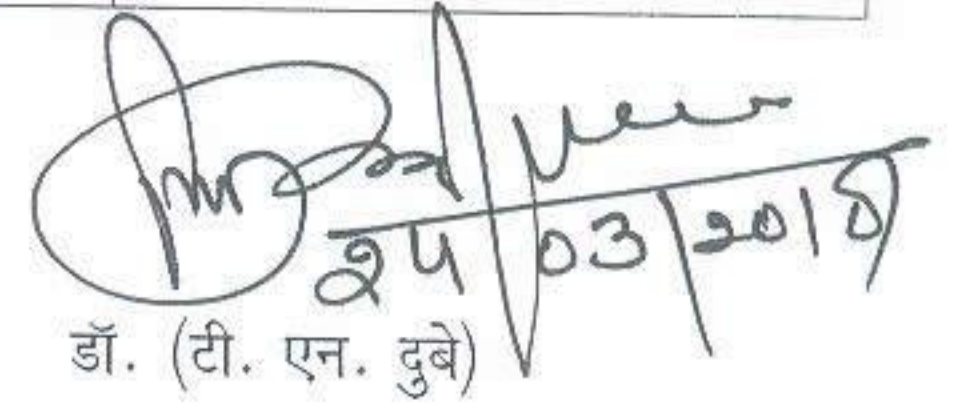 24/03/2018
डॉ. (टी. एन. दुबे)